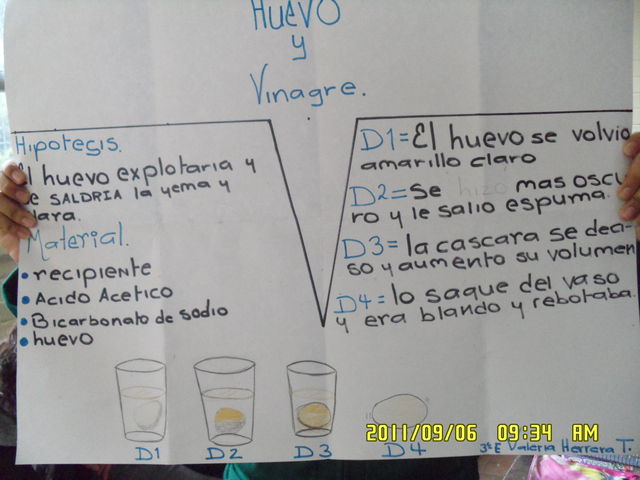 HUEVO
y
Vinagre.
Hipotesis.
El huevo explotaria y
se SALDRIA la yema y
clara.
Material.
• recipiente
• Acido Acetico
• Bicarbonato de sodio
• huevo
D1= El huevo se volvio
amarillo claro
D2= se hizo mas oscu
ro y le salio espuma.
D3= la cascara se dea-
so y aumento su volumen
D4= lo saque del vaso
y era blando y rebotaba
D1
D2
D3
D4
2011/09/06 09:34 AM
3ºE Valeria Herrera T.